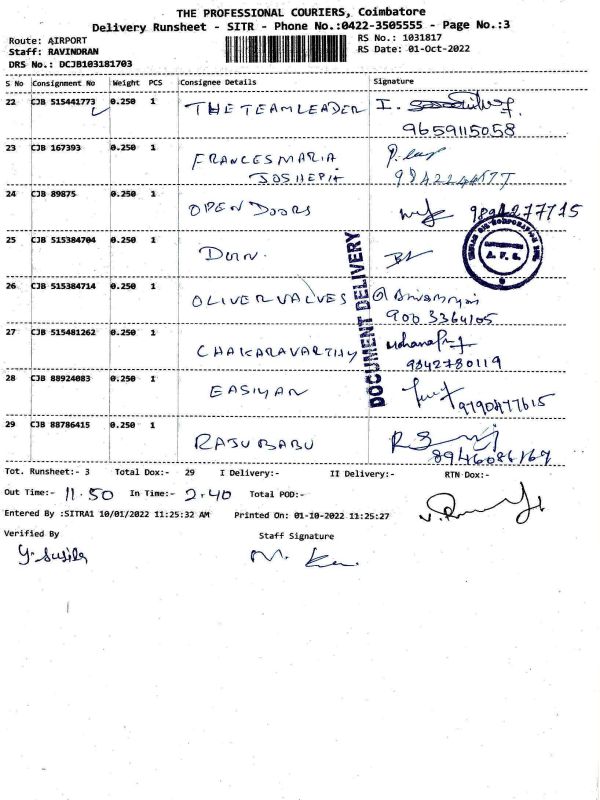 THE PROFESSIONAL COURIERS, Coimbatore
Delivery Runsheet - SITR - Phone No.:0422-3505555 - Page No.:3
Route: AIRPORT
RS No.: 1031817
Staff: RAVINDRAN
RS Date: 01-Oct-2022
DRS No.: DCJB103181703
S No Consignment No Weight PCS Consignee Details Signature
22 CJB 515441773 0.250 1 THE TEAM LEADER I.
9659115058
23 CJB 167393 0.250 1 FRANCES MARIA
JOSHEPH
24 CJB 89875 0.250 1 OPEN DOORS 9894277715
25 CJB 515384704 0.250 1
26 CJB 515384714 0.250 1 OLIVER VALVES
900 3364105
27 CJB 515481262 0.250 1 CHAKARAVARTHY
9842780119
28 CJB 88924083 0.250 1 EASIYAN
9790477615
29 CJB 88786415 0.250 1 RAJU BABU
8946086169
DOCUMENT DELIVERY
A. F. S.
Tot. Runsheet:- 3 Total Dox:- 29 I Delivery:- II Delivery:- RTN Dox:-
Out Time:- 11.50 In Time:- 2.40 Total POD:-
Entered By :SITRA1 10/01/2022 11:25:32 AM Printed On: 01-10-2022 11:25:27
Verified By Staff Signature
Y. Susila M.